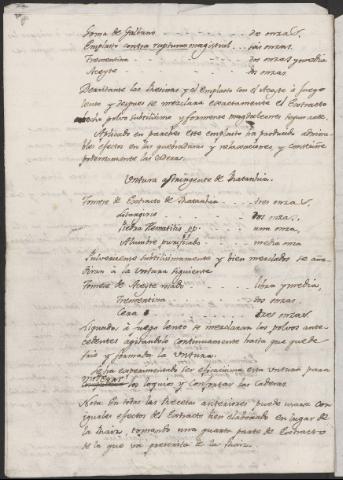 Goma de Galbano - - - - - - - do onzas.
Emplasto contra ruptura magistral - - - seis onzas.
Trementina - - - - - - - dos onzas y media
Aceyte - - - - - - - dos onzas.
Derritanse las Resinas y el Emplasto con el Aceyte à fuego
lento y despues se mezclara exactamente el Extracto
hecho polvo subtilisimo y formense magdaleones segun arte.
Aplicado en parches este emplasto ha producido admira-
bles efectos en las quebraduras y relaxaciones, y constriñe
potentemente las
Untura astringente de Ratanhia.
Tomese de Extracto de Ratanhia - - - - tres onzas.
Litargirio - - - - dos onzas.
Piedra Hematitis pp. - - - - una onza,
Alumbre purificado - - - - media onza
Pulvericense subtilisimamente y bien mezclados se aña-
diran a la Untura siguiente
Tomese de Aceyte rosado - - - - libra y media,
Trementina - - - - dos onzas.
Cera - - - - tres onzas.
Liquados à fuego lento se mezclaran los polvos ante-
cedentes agitandolo continuamente hasta que quede
frio y formada la Untura.
Se ha experimentado ser eficacisima esta untura para
mitigar los loquios y confortar las caderas.
Nota En todas las Recetas anteriores puede usarse con
iguales efectos del Extracto bien elaborado en lugar de
la Raiz, tomando una quarta parte de Extracto
de la que va prescrita de la Raiz.